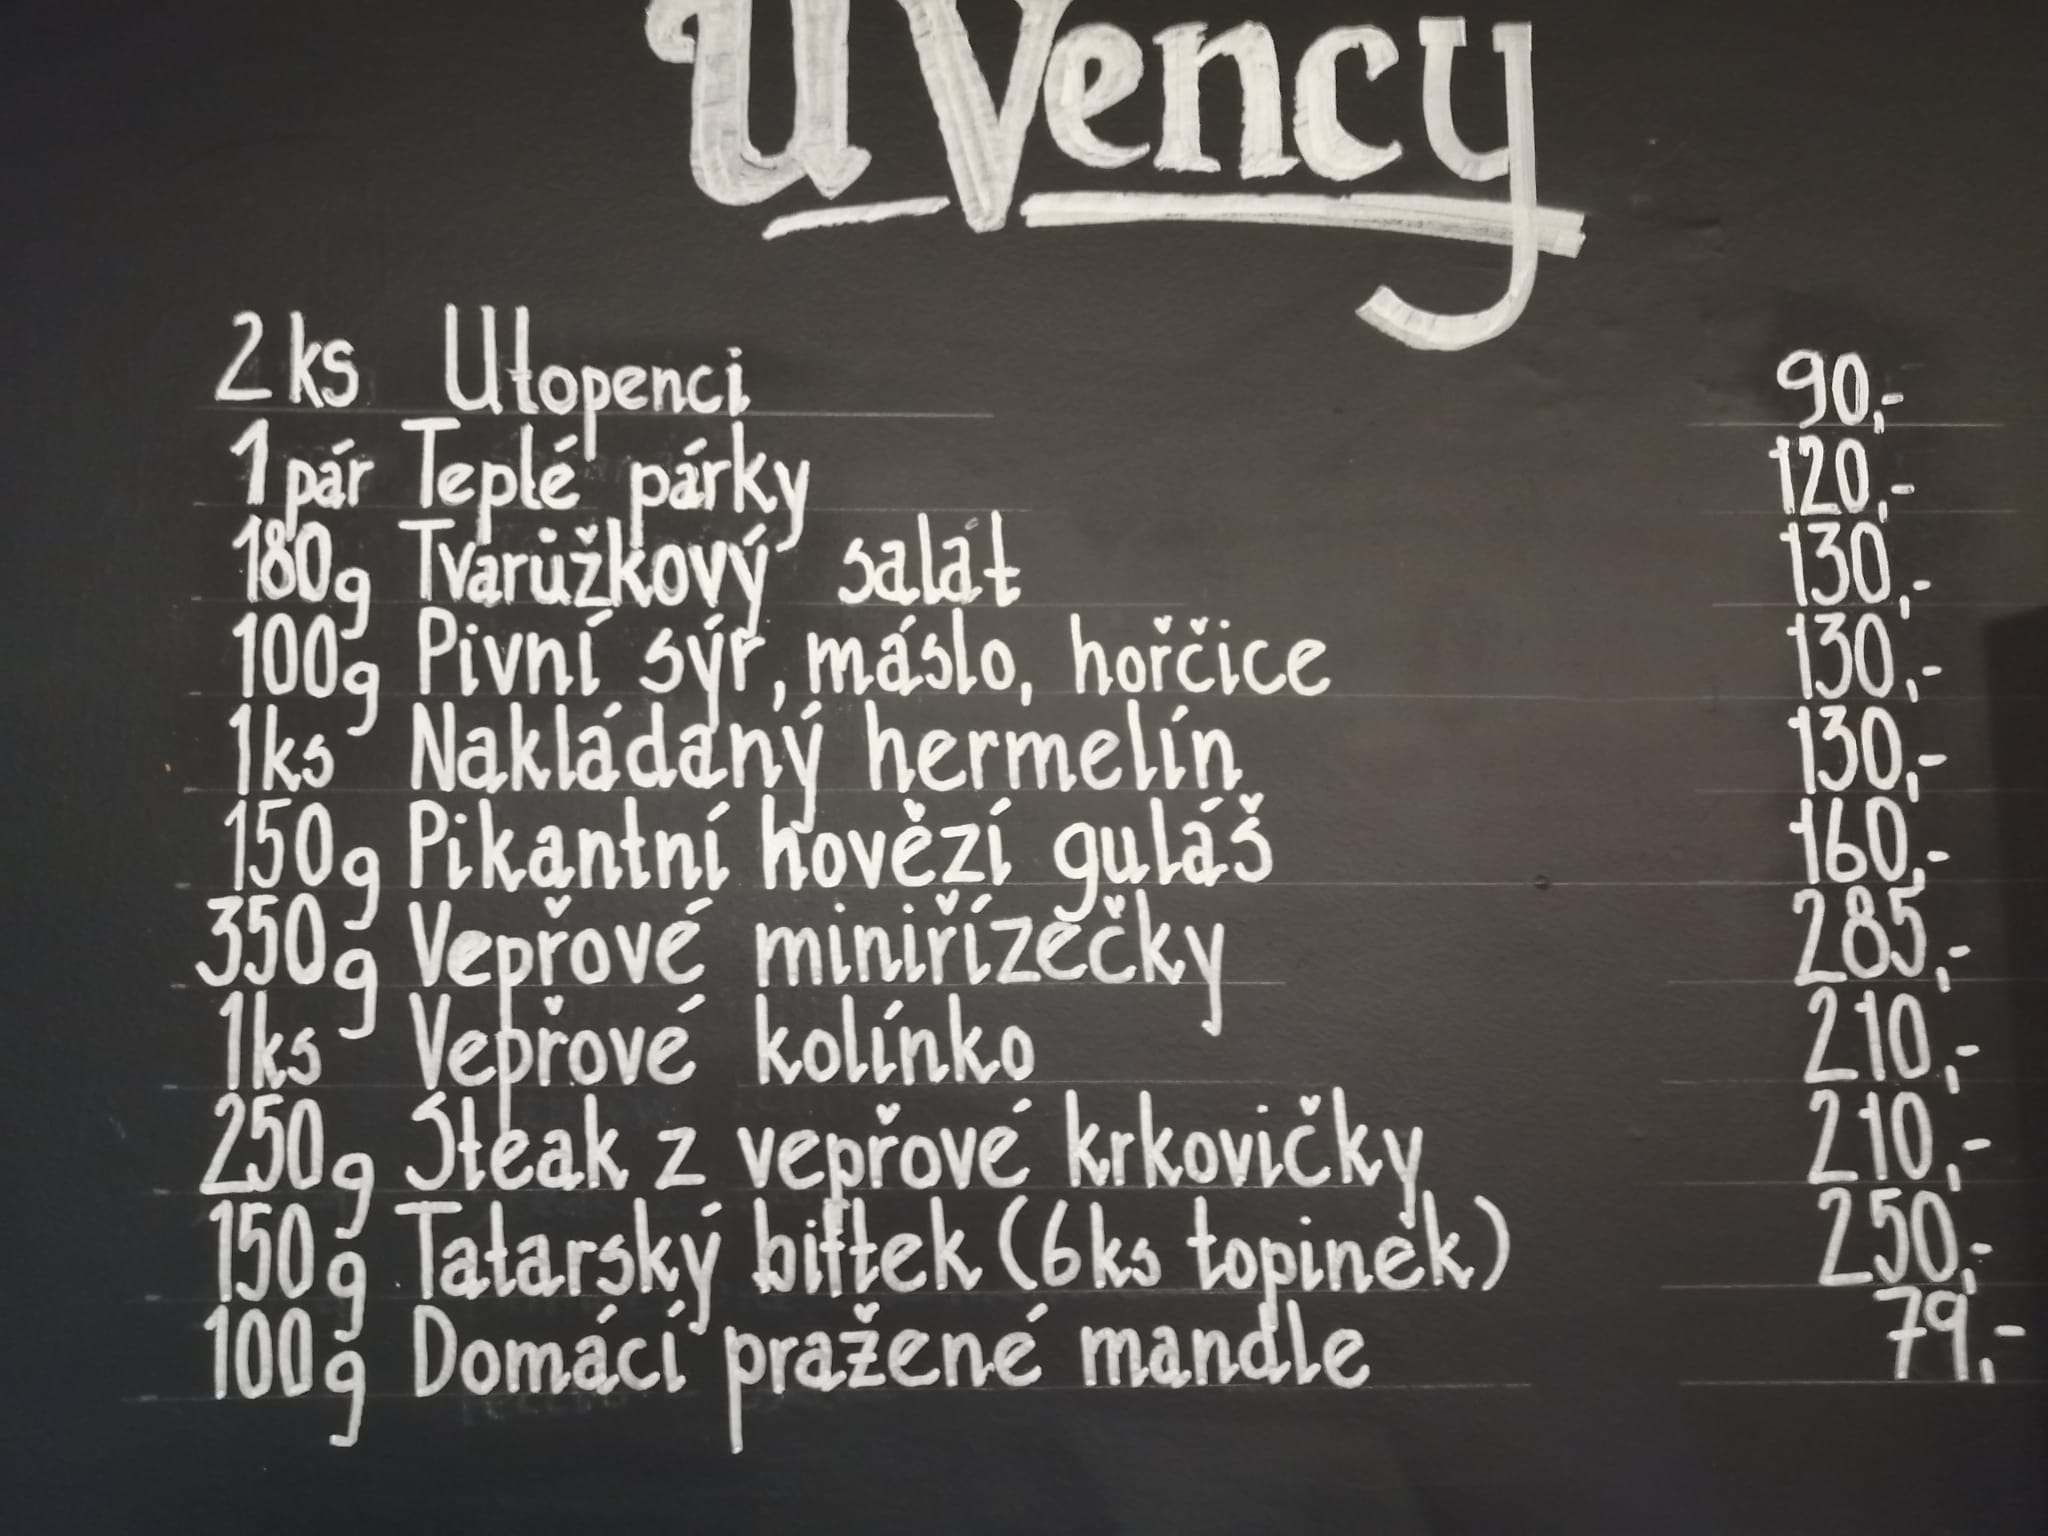 U Vency
2 ks Utopenci 90,-
1 pár Teplé párky 120,-
180g Tvarůžkový salát 130,-
100g Pivní sýr, máslo, hořčice 130,-
1ks Nakládaný hermelín 130,-
150g Pikantní hovězí guláš 160,-
350g Vepřové miniřízečky 285,-
1ks Vepřové kolínko 210,-
250g Steak z vepřové krkovičky 210,-
150g Tatarský biftek (6ks topinek) 250,-
100g Domácí pražené mandle 79,-